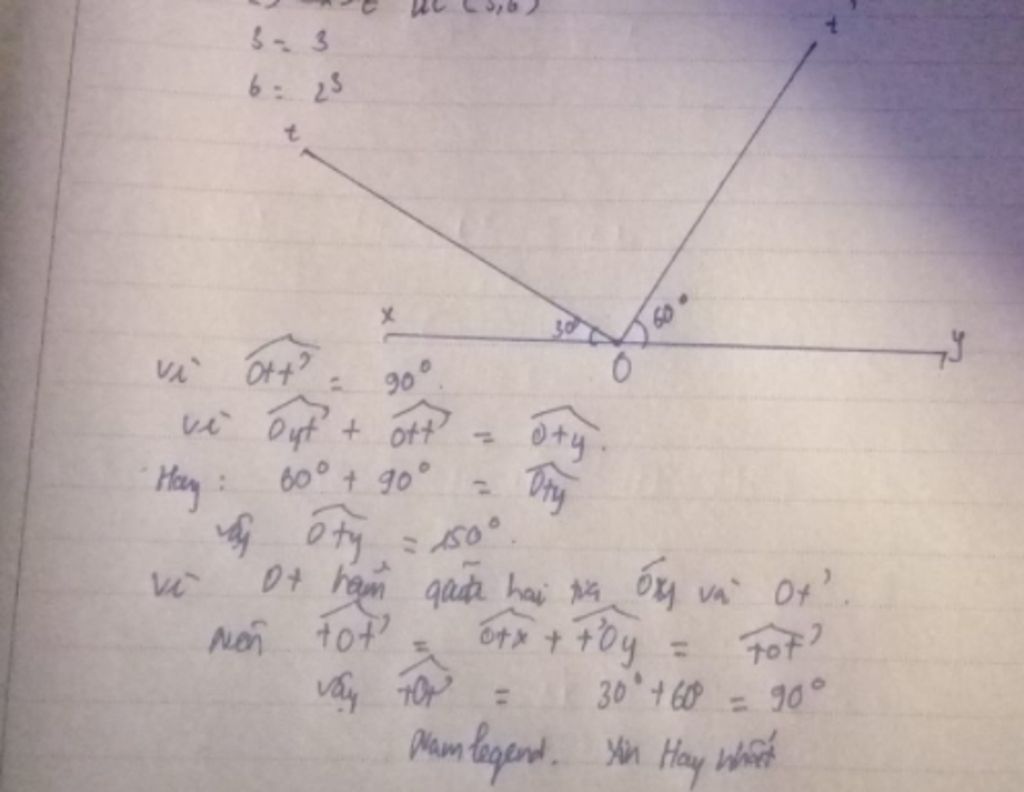 BC (3,6)
3 = 3
6 = 2³
t
t'
x
30°
60°
y
O
Vì Ott' = 90°.
Vì Oyt' + Ott' = Oty.
Hay : 60° + 90° = Oty
Vậy Oty = 150°.
Vì Ot nằm giữa hai tia Oxy và Ot'.
nên tOt' = Otx + t'Oy = tOt'
Vậy tOt' = 30° + 60° = 90°
Nam legend. Xin Hay nhất